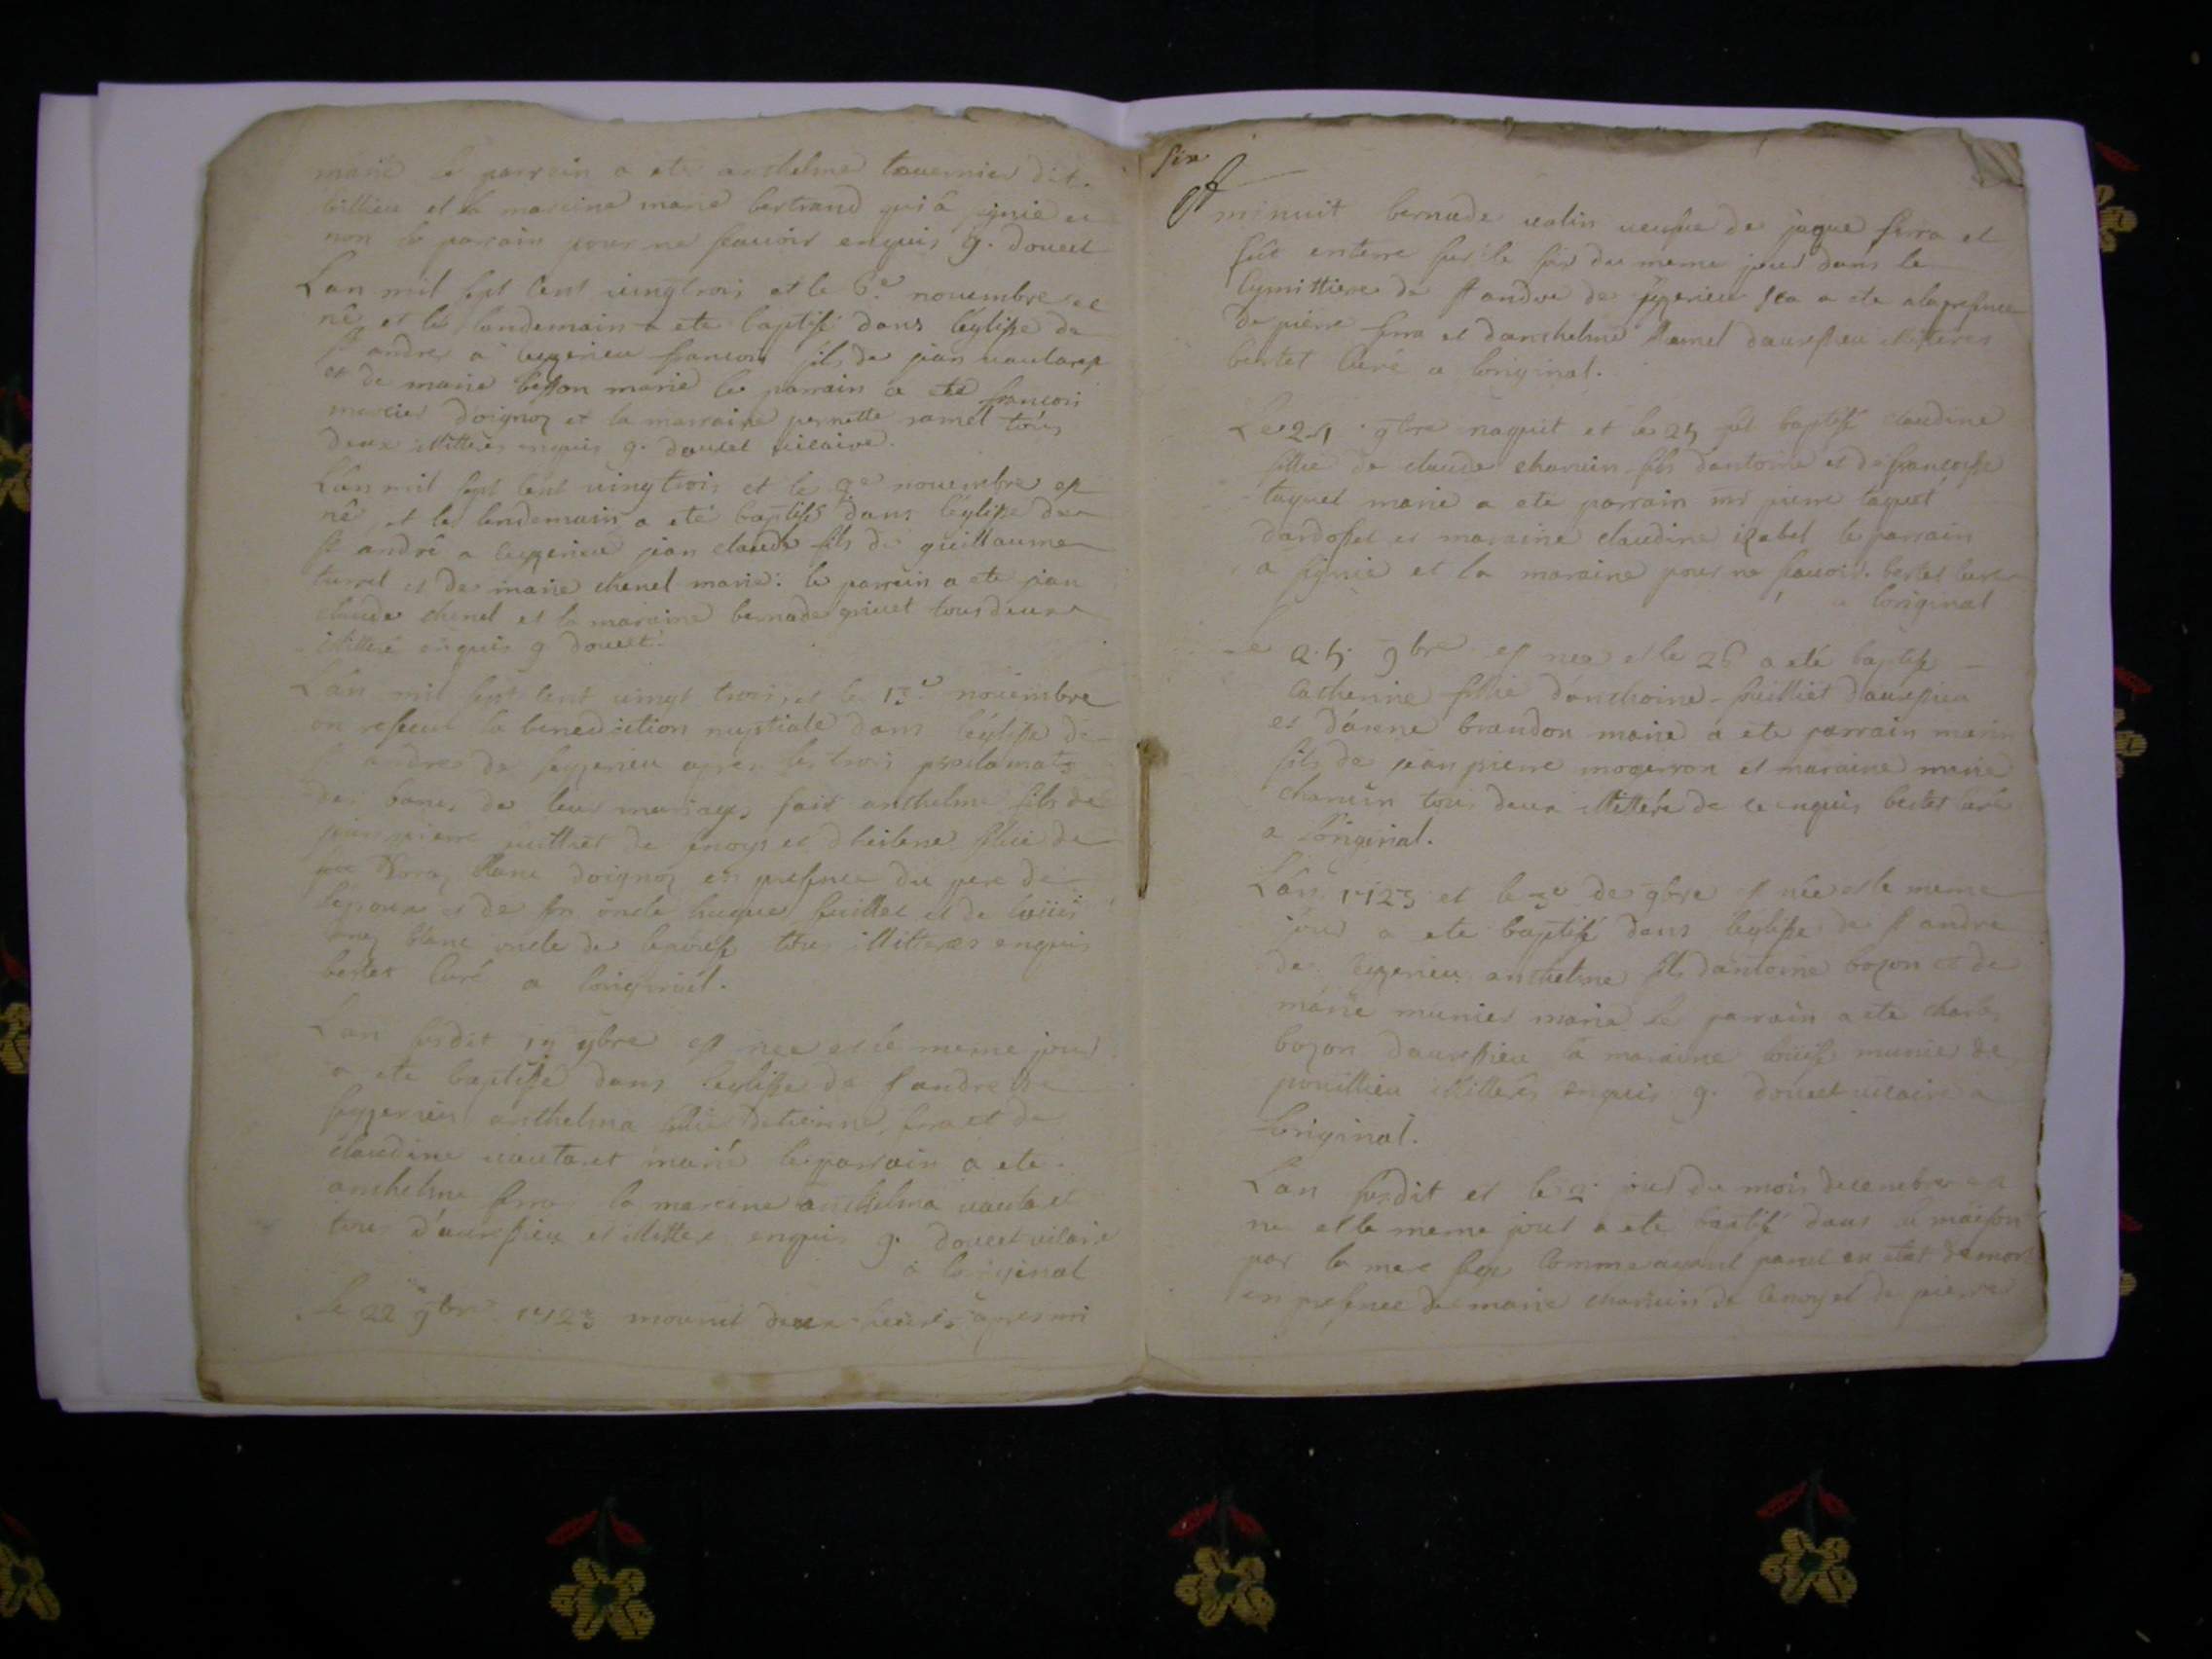 marié le parrain a ete anthelme tavernier dit
et la maraine marie bertrand qui a signié et
non le parrain pour ne scavoir enquis g. doucet
Lan mil sept cent vingtrois et le 6e novembre est
né et le landemain a ete baptisé dans léglisse de
st andre a ceyzerieu francois fils de jean vautaret
et de marie besson marié le parrain a eté francois
mercier doignoz et la marraine pernette ramel tous
deux illitteres enquis g. doucet vicaire.
Lan mil sept cent vingtrois et le 9e novembre est
né et le lendemain a eté baptisé dans léglisse de
st andré a ceyzerieu jean claude fils de guillaume
turrel et de marie chenel marié: le parrain a ete jean
claude chenel et la maraine bernade grivet tous deux
illitteré enquis g doucet.
Lan mil sept cent vingt trois et le 13e novembre
on resseu la benediction nuptiale dans léglisse de
st andre de seyzerieu apres les trois proclamats
des bancs de leur mariages fait anthelme fils de
jean pierre de et dheilene fillie de
blanc doignoz en presence du pere de
lepoux et de son oncle hugue et de
blanc oncle de tous illitteres enquis
bertet curé a loriginal.
Lan susdit 19 9bre est nee et le meme jour
a ete baptisse dans leglisse de st andre de
seyzerieu anthelma fillie detienne serra et de
claudine vautaret marié le parrain a ete
anthelme serra la maraine anthelma vautaret
tous d'avressieu et illittere enquis g. doucet vicaire
a loriginal
le 22 9bre 1723 mourut deux heures apres mi
six
minuit bernade valin veufve de jaque serra et
fut enterre sur le soir du meme jour dans le
cymittiere de st andre de seyzerieu a ete a la presence
de pierre serra et danthelme ramel davressieu illitteres
bertet curé a loriginal.
Le 24 9bre naquit et le 25 fut baptisé claudine
fillie de claude charvin fils dantoine et de francoise
taquet marié a ete parrain mr pierre taquet
et maraine claudine izabel le parrain
a signié et la maraine pour ne scavoir. bertet curé
a loriginal
Le 25 9bre est nee et le 26 a eté baptisse
catherine fillie danthoine davressieu
et d'anne brandon marié a ete parrain marin
fils de jean pierre mogerron et maraine marie
charvin tous deux illitteré de ce enquis bertet curé
a loriginal.
Lan 1723 et le 3e de xbre est née et le meme
jour a ete baptisé dans leglisse de st andre
de ceyzerieu anthelme fils dantoine bozon et de
marie munier marié le parrain a ete charle
bozon davressieu la maraine louise munier de
illitterés enquis g. doucet vicaire a
loriginal.
Lan susdit et le jour du mois decembre est
ne et le meme jour a ete baptisé dans la maison
par la mere sage comme ayant paru en etat de mort
en presence de marie charvin de et de pierre